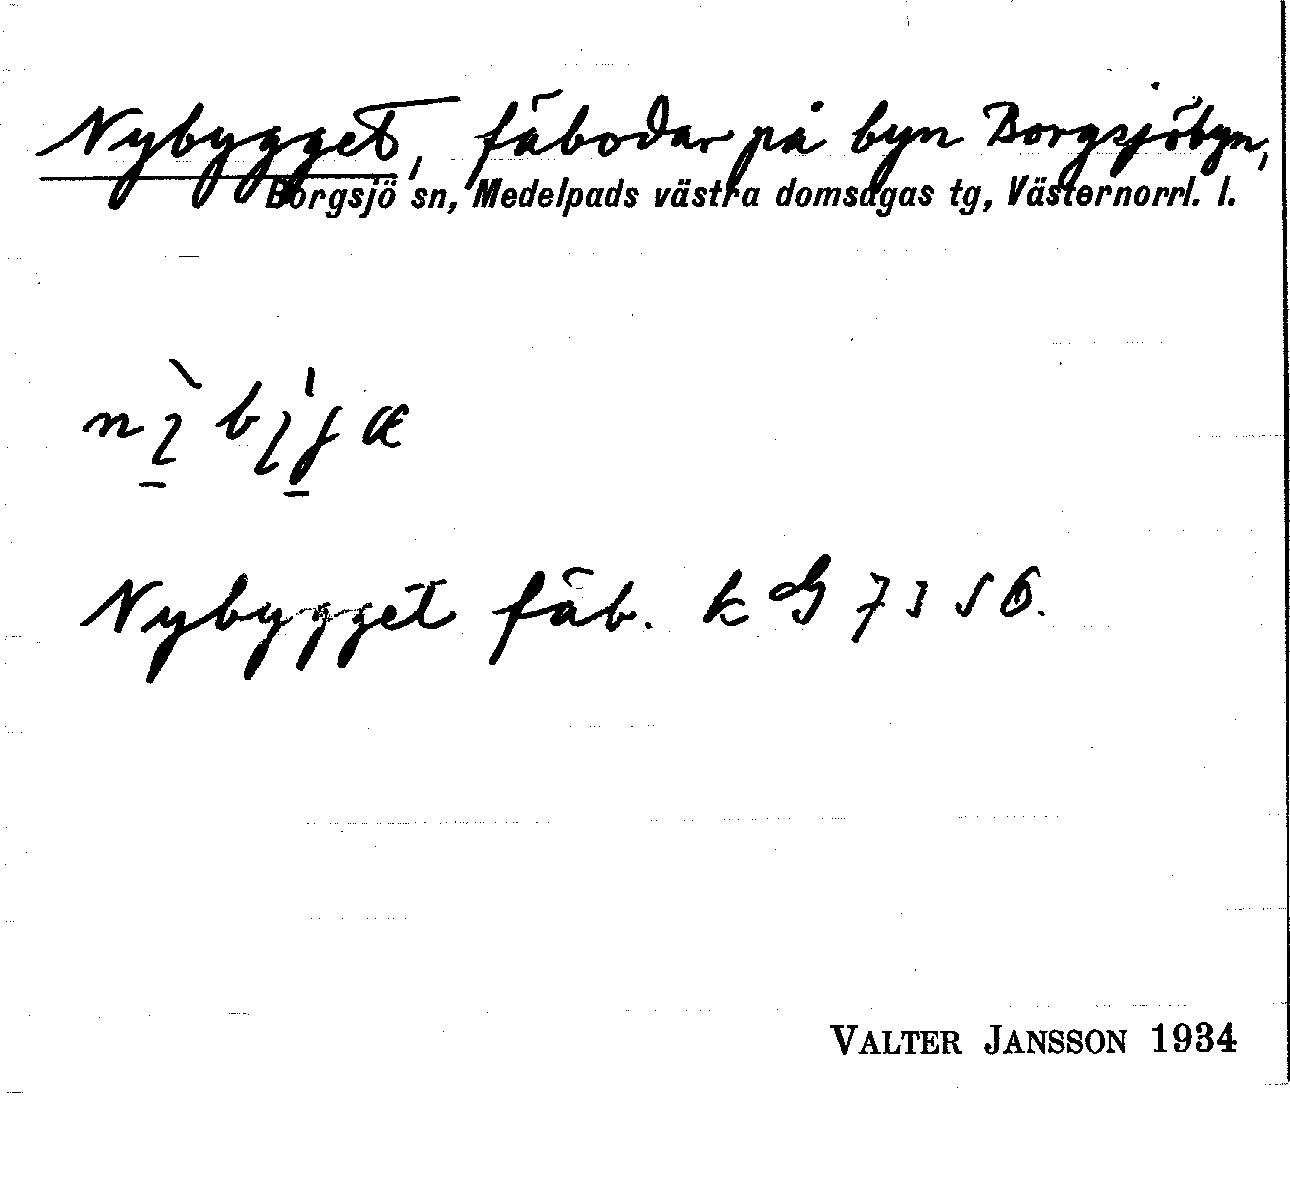 Nybygget, fäbodar på byn Borgsjöbyn,
Borgsjö sn, Medelpads västra domsagas tg, Västernorrl. l.
Nybygget fäb. k G 7356.
VALTER JANSSON 1934